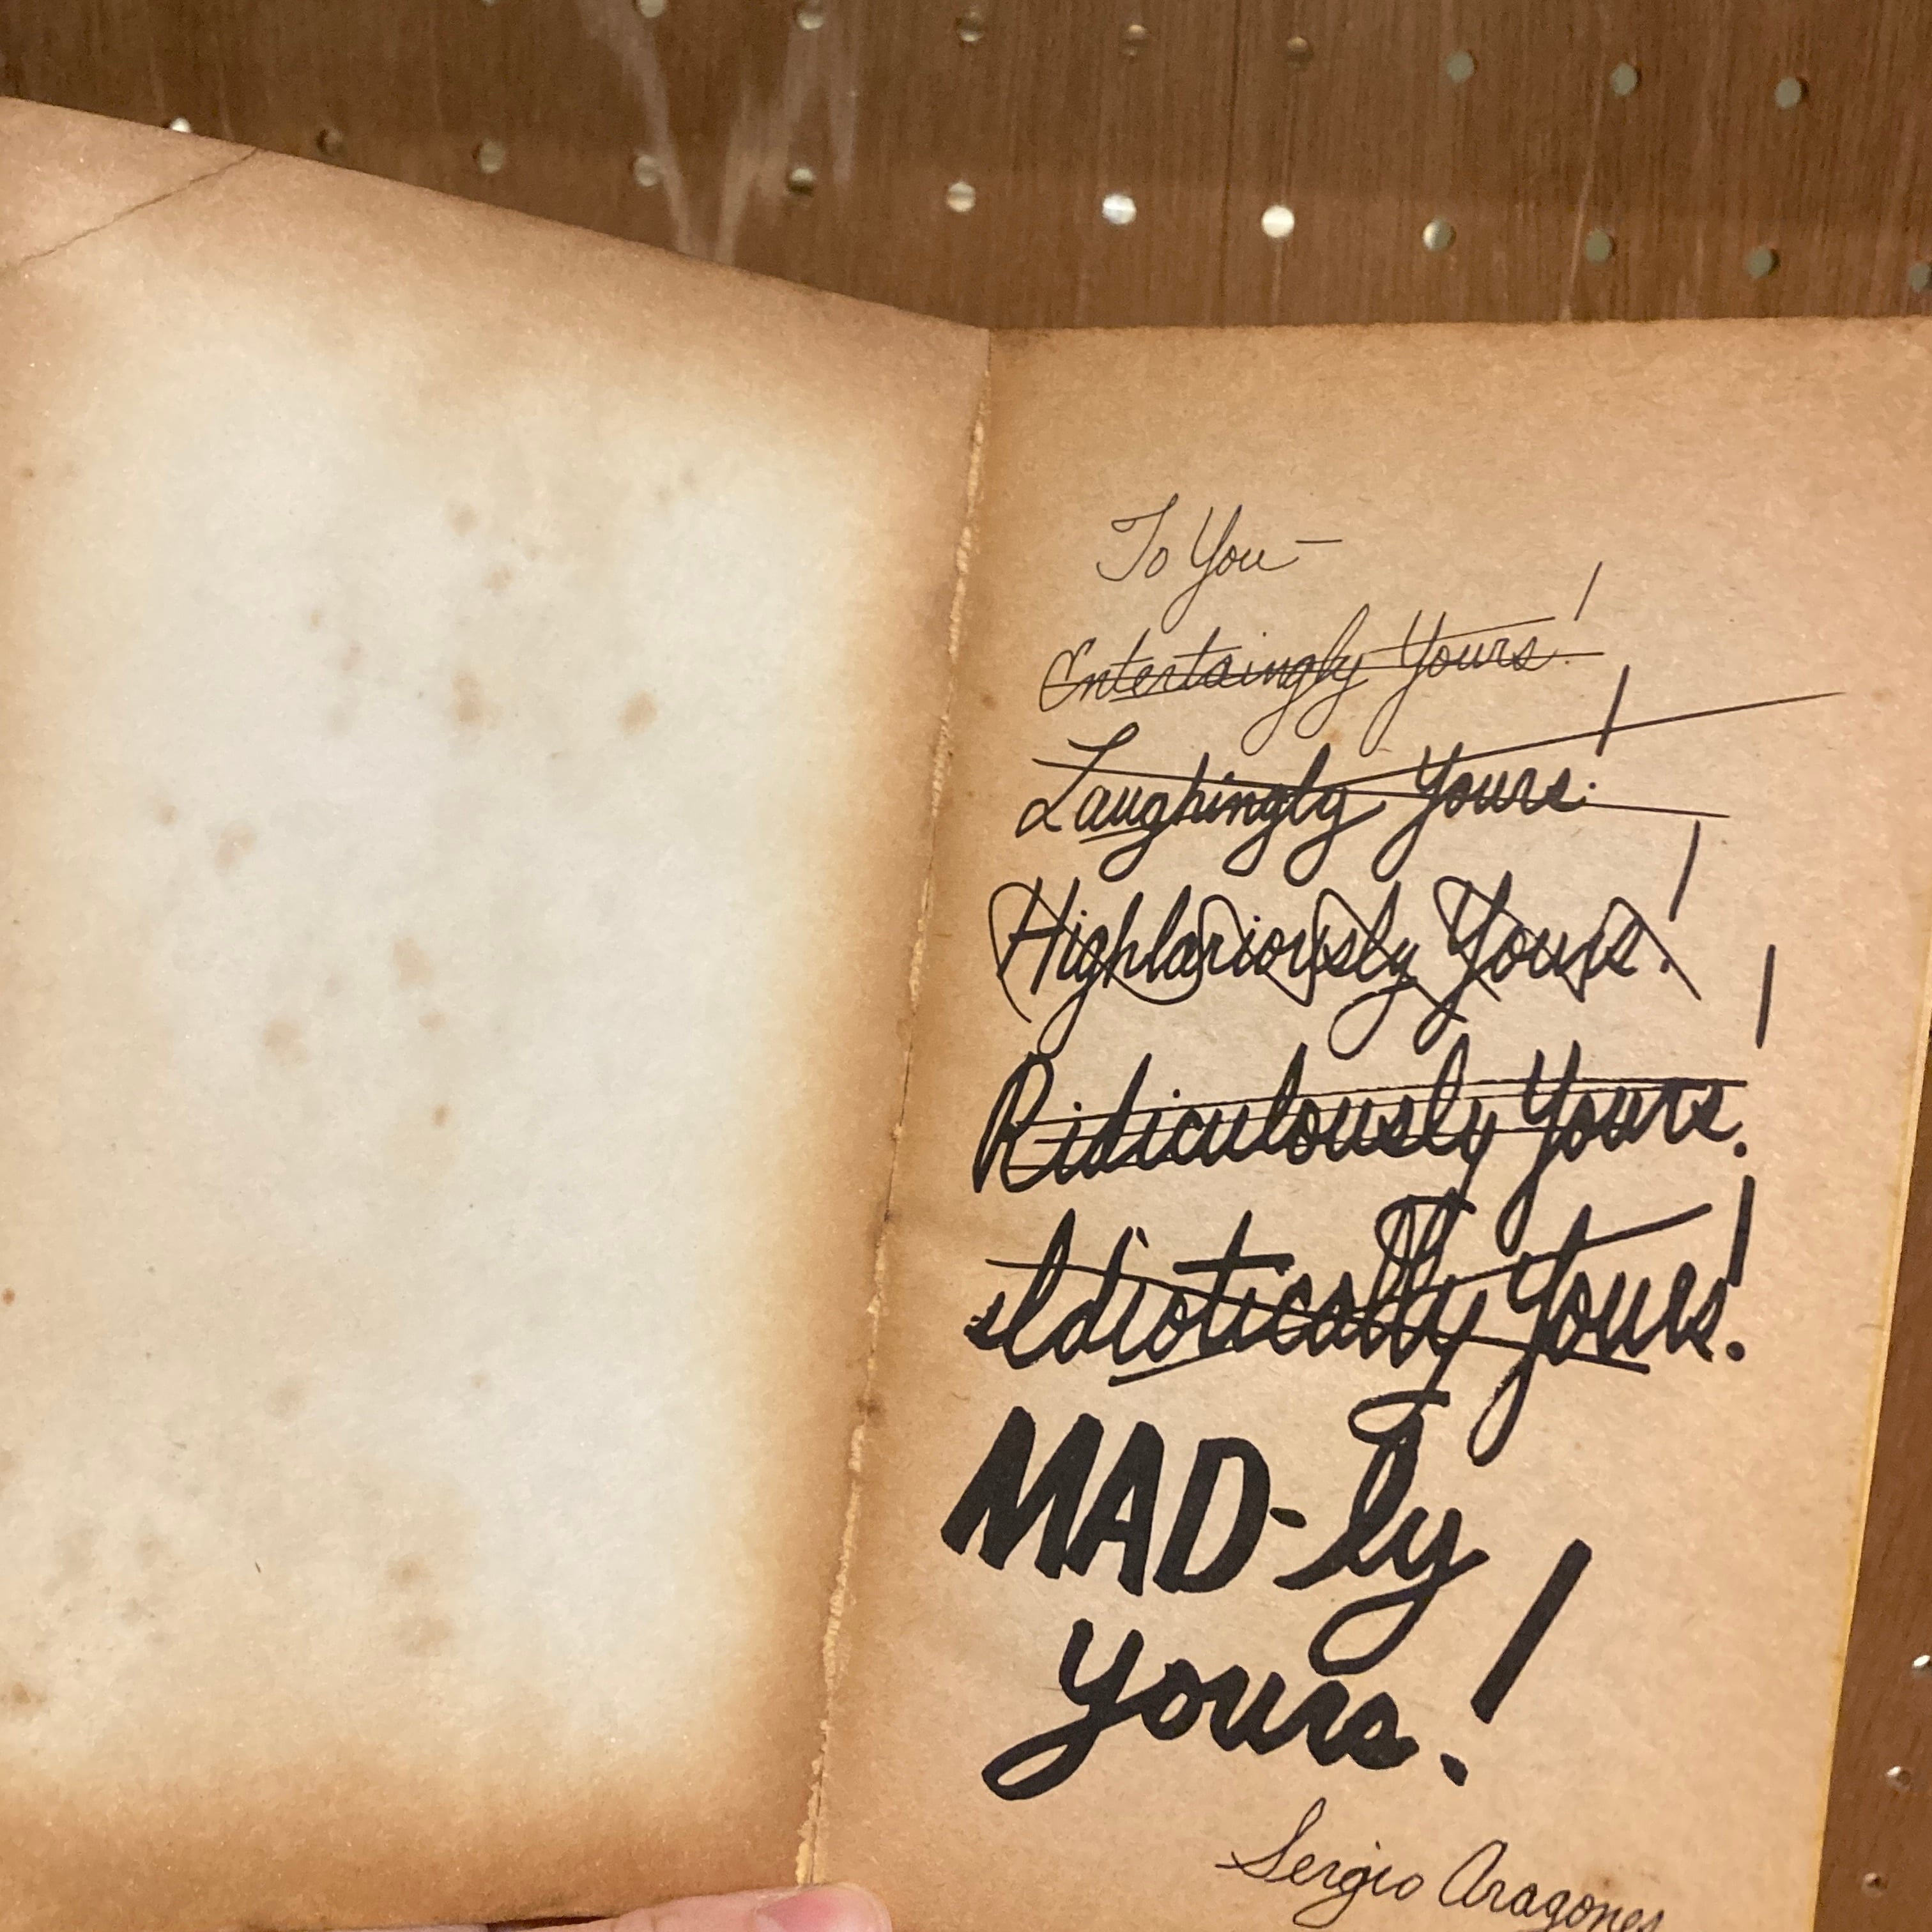 To You—
Entertaingly Yours!
Laughingly Yours!
Highlariously Yours!
Ridiculously Yours!
Idiotically Yours!
MAD-ly
Yours!
Sergio Aragones